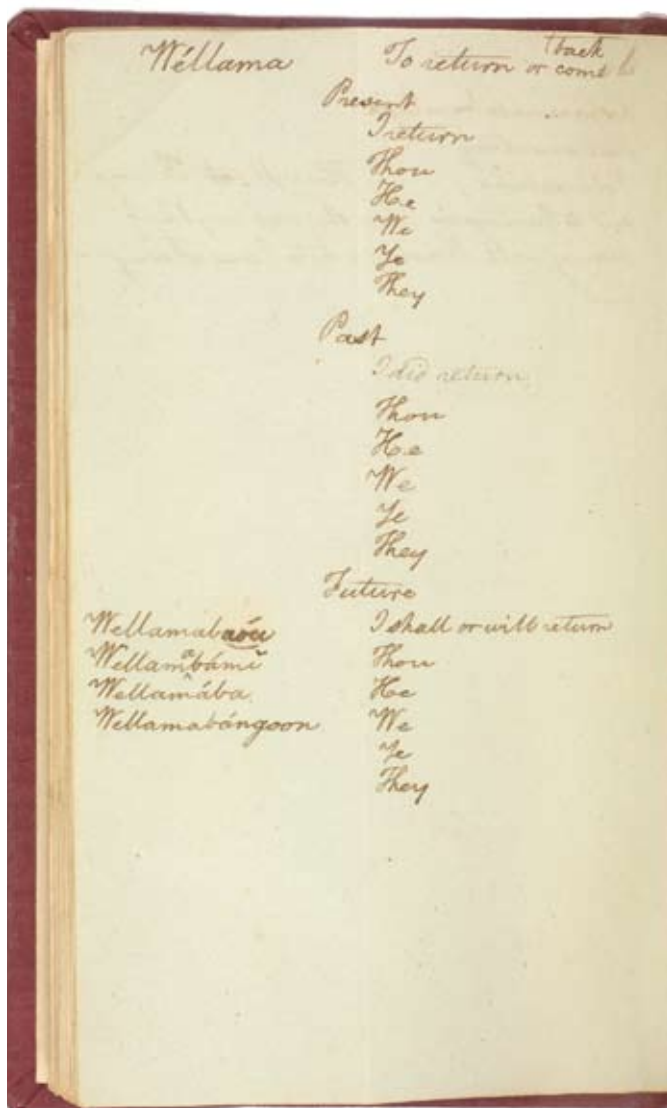 back
Wéllama To return or come
Present
I return
Thou
He
We
Ye
They
Past
I did return
Thou
He
We
Ye
They
Future
Wellamabaóu I shall or will return
Wellamabámi Thou
Wellamába He
Wellamabángoon We
Ye
They